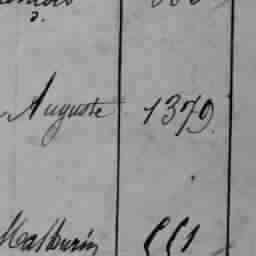 Auguste 1379
Mathurin 551